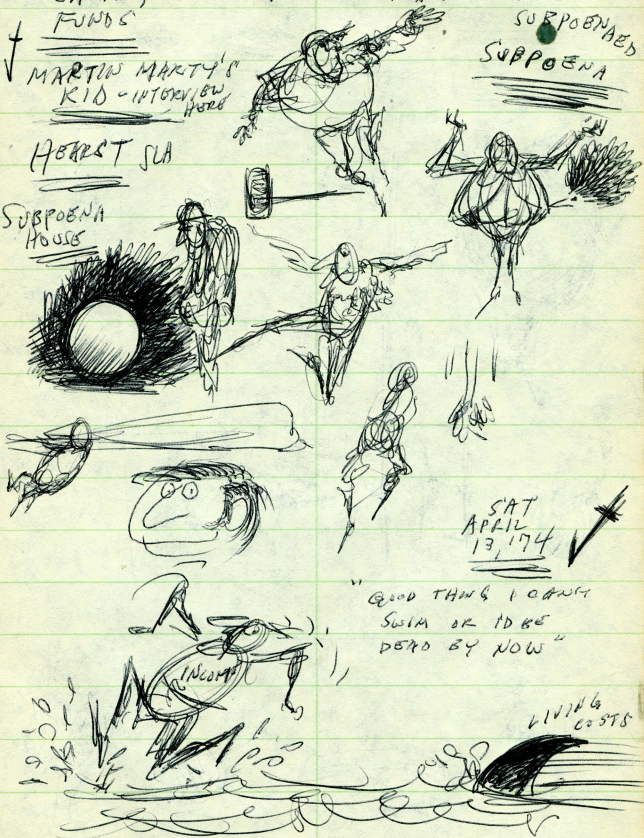 FUNDS
MARTIN MARTY'S
KID - INTERVIEW
HERE
HEARST SLA
SUBPOENA
HOUSE
SUBPOENAED
SUBPOENA
SAT
APRIL
13, '74
"GOOD THING I CAN'T
SWIM OR I'D BE
DEAD BY NOW"
INCOME
LIVING
COSTS